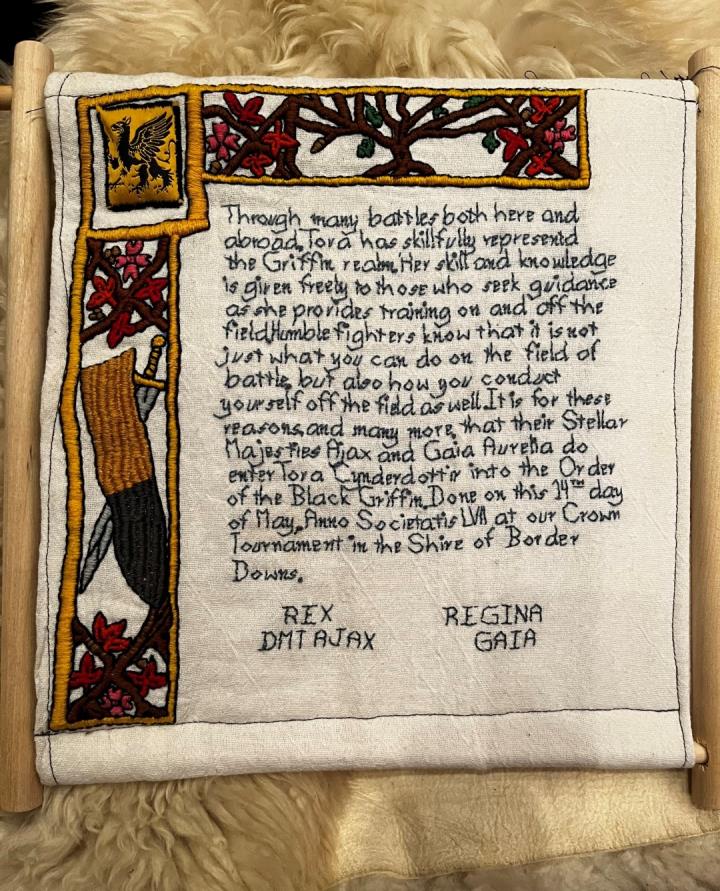 Through many battles both here and
abroad, Tora has skillfully representd
the Griffin realm. Her skill and knowledge
is given freely to those who seek guidance
as she provides training on and off the
field. Humble fighters know that it is not
just what you can do on the field of
battle, but also how you conduct
yourself off the field as well. It is for these
reasons, and many more, that their Stellar
Majesties Ajax and Gaia Aurelia do
enter Tora Cynderdottir into the Order
of the Black Griffin. Done on this 14th day
of May, Anno Societatis LVII at our Crown
Tournament in the Shire of Border
Downs.
REX REGINA
DMT AJAX GAIA